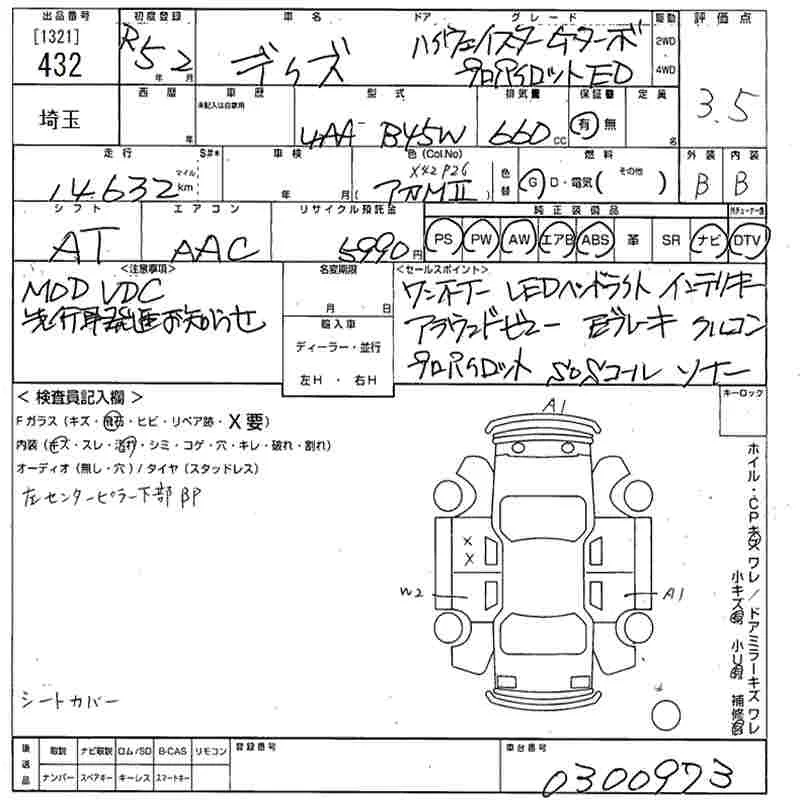 出品番号 初度登録 車名 ドア グレード 駆動 評価点
[1321]
432
R5 2
年 月
デイズ
ハイウェイスターGターボ
プロパイロットED
2WD
4WD
3.5
埼玉
西暦 車歴 型式 排気量 保証書 定員
未記入は自家用
年
4AA B45W
660 cc
有 無
名
走行 S#* 車検 色(Col.No) 燃料 外装 内装
14.632 マイル km
年 月
XK2P26
色替
G D・電気( その他 )
B B
シフト エアコン リサイクル預託金 純正装備品
AT AAC 5990円
PS PW AW エアB ABS 革 SR ナビ DTV
<注意事項> 名変期限 <セールスポイント>
MOD VDC
月 日
輸入車
ディーラー・並行
左H ・ 右H
ワンオーナー LEDヘッドライト インテリキー
アラウンドビュー Eブレーキ クルコン
プロパイロット SOSコール ソナー
キーロック
<検査員記入欄>
Fガラス(キズ・飛石・ヒビ・リペア跡・X要)
内装(キズ・スレ・汚れ・シミ・コゲ・穴・キレ・破れ・割れ)
オーディオ(無し・穴)/タイヤ(スタッドレス)
左センターピラー下部BP
A1
X
X
W2
A1
ホイル・CPキズワレ/ドアミラーキズワレ
シートカバー
後送品 取説 ナビ取説 ロム/SD B-CAS リモコン
ナンバー スペアキー キーレス スマートキー
登録番号
車台番号
0300973